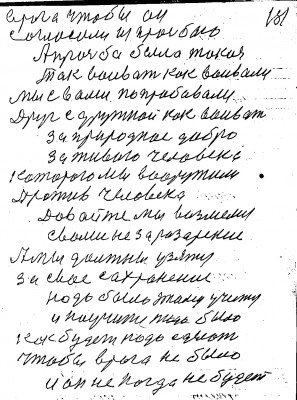 врага чтобы он 181
согласили из прозбою
Апрочба была такая
Так воиват как воивали
мы с вами попробавали
Друг с дружкой как воиват
За природное добро
За живого человека
которого мы вооружили
Против человека
Довайте мы возмем
свами не за разарение
Амы должны узяту
За свое сахронение
нодь было этаму учиту
и поучить нодь было
Как будет нодь едиот
чтобы врага не было
и он не когда не будет